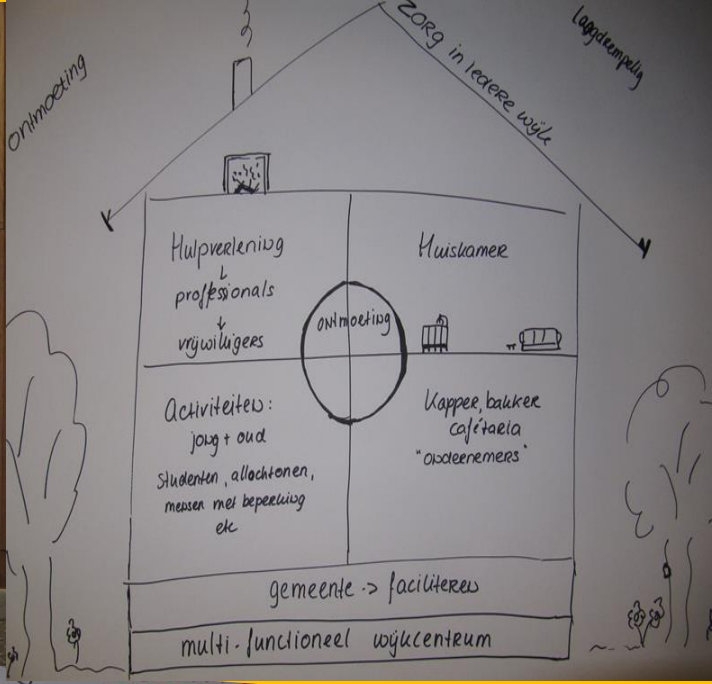 ontmoeting
ZORG in IEDERE wijk
Laagdrempelig
Hulpverlening
↓
professionals
↓
vrijwilligers
Huiskamer
ontmoeting
Activiteiten:
jong + oud
studenten, allochtonen,
mensen met beperking
etc
Kapper, bakker
cafétaria
"ondernemers"
gemeente -> faciliteren
multi-functioneel wijkcentrum